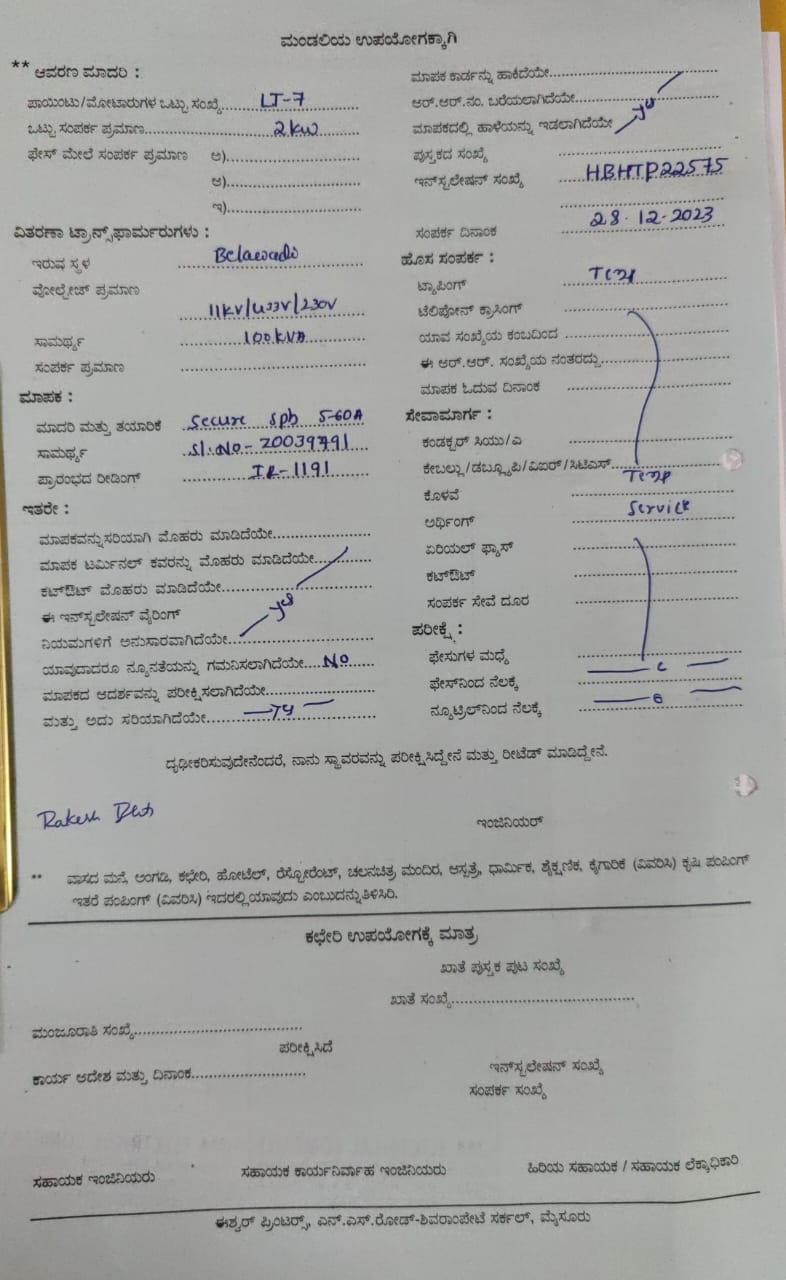 ಮಂಡಲಿಯ ಉಪಯೋಗಕ್ಕಾಗಿ
** ಆವರಣ ಮಾದರಿ :
ಪಾಯಿಂಟು/ಮೋಟಾರುಗಳ ಒಟ್ಟು ಸಂಖ್ಯೆ....... LT-7
ಒಟ್ಟು ಸಂಪರ್ಕ ಪ್ರಮಾಣ....... 2kW
ಫೇಸ್ ಮೇಲೆ ಸಂಪರ್ಕ ಪ್ರಮಾಣ ಅ).......
ಆ).......
ಇ).......
ವಿತರಣಾ ಟ್ರಾನ್ಸ್‌ಫಾರ್ಮರುಗಳು :
ಇರುವ ಸ್ಥಳ Belawadi
ವೋಲ್ಟೇಜ್ ಪ್ರಮಾಣ
11KV/433V/230V
ಸಾಮರ್ಥ್ಯ 100KVA
ಸಂಪರ್ಕ ಪ್ರಮಾಣ
ಮಾಪಕ :
ಮಾದರಿ ಮತ್ತು ತಯಾರಿಕೆ Secure Sph 5-60A
ಸಾಮರ್ಥ್ಯ Sl.No-
ಪ್ರಾರಂಭದ ರೀಡಿಂಗ್ IR-1191
ಇತರೇ :
ಮಾಪಕವನ್ನು ಸರಿಯಾಗಿ ಮೊಹರು ಮಾಡಿದೆಯೇ.......
ಮಾಪಕ ಟರ್ಮಿನಲ್ ಕವರನ್ನು ಮೊಹರು ಮಾಡಿದೆಯೇ.......
ಕಟ್‌ಔಟ್ ಮೊಹರು ಮಾಡಿದೆಯೇ.......
ಈ ಇನ್‌ಸ್ಟಲೇಷನ್ ವೈರಿಂಗ್
ನಿಯಮಗಳಿಗೆ ಅನುಸಾರವಾಗಿದೆಯೇ....... yes
ಯಾವುದಾದರೂ ನ್ಯೂನತೆಯನ್ನು ಗಮನಿಸಲಾಗಿದೆಯೇ.... No
ಮಾಪಕದ ಆದರ್ಶವನ್ನು ಪರೀಕ್ಷಿಸಲಾಗಿದೆಯೇ.......
ಮತ್ತು ಅದು ಸರಿಯಾಗಿದೆಯೇ.......
ಮಾಪಕ ಕಾರ್ಡನ್ನು ಹಾಕಿದೆಯೇ.......
ಆರ್.ಆರ್.ನಂ. ಬರೆಯಲಾಗಿದೆಯೇ.......
ಮಾಪಕದಲ್ಲಿ ಹಾಳೆಯನ್ನು ಇಡಲಾಗಿದೆಯೇ yes
ಪುಸ್ತಕದ ಸಂಖ್ಯೆ
ಇನ್‌ಸ್ಟಲೇಷನ್ ಸಂಖ್ಯೆ HBHTP22575
ಸಂಪರ್ಕ ದಿನಾಂಕ 28.12.2023
ಹೊಸ ಸಂಪರ್ಕ :
ಟ್ಯಾಪಿಂಗ್ Temp
ಟೆಲಿಫೋನ್ ಕ್ರಾಸಿಂಗ್
ಯಾವ ಸಂಖ್ಯೆಯ ಕಂಬದಿಂದ
ಈ ಆರ್.ಆರ್. ಸಂಖ್ಯೆಯ ನಂತರದ್ದು.......
ಮಾಪಕ ಓದುವ ದಿನಾಂಕ
ಸೇವಾಮಾರ್ಗ :
ಕಂಡಕ್ಟರ್ ಸಿಯು/ಎ
ಕೇಬಲ್ಲು/ಡಬ್ಲ್ಯೂಪಿ/ವಿಐಆರ್/ಸಿಟಿಎಸ್.......
ಕೊಳವೆ Temp
ಅರ್ಥಿಂಗ್ Service
ಏರಿಯಲ್ ಫ್ಯೂಸ್
ಕಟ್‌ಔಟ್
ಸಂಪರ್ಕ ಸೇವೆ ದೂರ
ಪರೀಕ್ಷೆ :
ಫೇಸುಗಳ ಮಧ್ಯೆ
ಫೇಸ್‌ನಿಂದ ನೆಲಕ್ಕೆ
ನ್ಯೂಟ್ರಿಲ್‌ನಿಂದ ನೆಲಕ್ಕೆ
ದೃಢೀಕರಿಸುವುದೇನೆಂದರೆ, ನಾನು ಸ್ಥಾವರವನ್ನು ಪರೀಕ್ಷಿಸಿದ್ದೇನೆ ಮತ್ತು ರೀಟೆಡ್ ಮಾಡಿದ್ದೇನೆ.
Rakesh
ಇಂಜಿನಿಯರ್
** ವಾಸದ ಮನೆ, ಅಂಗಡಿ, ಕಛೇರಿ, ಹೋಟೆಲ್, ರೆಸ್ಟೋರೆಂಟ್, ಚಲನಚಿತ್ರ ಮಂದಿರ, ಆಸ್ಪತ್ರೆ, ಧಾರ್ಮಿಕ, ಶೈಕ್ಷಣಿಕ, ಕೈಗಾರಿಕೆ (ವಿವರಿಸಿ) ಕೃಷಿ ಪಂಪಿಂಗ್
ಇತರೆ ಪಂಪಿಂಗ್ (ವಿವರಿಸಿ) ಇದರಲ್ಲಿ ಯಾವುದು ಎಂಬುದನ್ನು ತಿಳಿಸಿರಿ.
ಕಛೇರಿ ಉಪಯೋಗಕ್ಕೆ ಮಾತ್ರ
ಖಾತೆ ಪುಸ್ತಕ ಪುಟ ಸಂಖ್ಯೆ
ಖಾತೆ ಸಂಖ್ಯೆ.......
ಮಂಜೂರಾತಿ ಸಂಖ್ಯೆ.......
ಪರೀಕ್ಷಿಸಿದೆ
ಕಾರ್ಯ ಆದೇಶ ಮತ್ತು ದಿನಾಂಕ.......
ಇನ್‌ಸ್ಟಲೇಷನ್ ಸಂಖ್ಯೆ
ಸಂಪರ್ಕ ಸಂಖ್ಯೆ
ಸಹಾಯಕ ಇಂಜಿನಿಯರು ಸಹಾಯಕ ಕಾರ್ಯನಿರ್ವಾಹ ಇಂಜಿನಿಯರು ಹಿರಿಯ ಸಹಾಯಕ / ಸಹಾಯಕ ಲೆಕ್ಕಾಧಿಕಾರಿ
ಈಶ್ವರ್ ಪ್ರಿಂಟರ್ಸ್, ಎನ್.ಎಸ್.ರೋಡ್-ಶಿವರಾಂಪೇಟೆ ಸರ್ಕಲ್, ಮೈಸೂರು